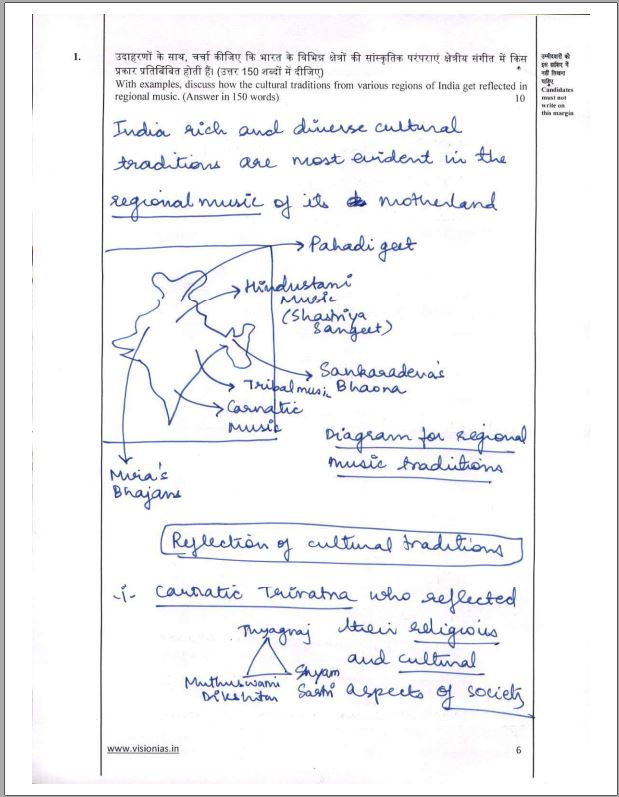 1.
उदाहरणों के साथ, चर्चा कीजिए कि भारत के विभिन्न क्षेत्रों की सांस्कृतिक परंपराएं क्षेत्रीय संगीत में किस
प्रकार प्रतिबिंबित होती हैं। (उत्तर 150 शब्दों में दीजिए)
With examples, discuss how the cultural traditions from various regions of India get reflected in
regional music. (Answer in 150 words)
10
उम्मीदवारों को
इस हाशिए में
नहीं लिखना
चाहिए
Candidates
must not
write on
this margin
India rich and diverse cultural
traditions are most evident in the
regional music of its motherland
Pahadi geet
Hindustani
Music
(Shastriya
Sangeet)
Sankaradeva's
Bhaona
Tribal music
Carnatic
Music
Diagram for regional
music tradiitions
Mira's
Bhajans
Reflection of cultural traditions
-i- Carnatic Triratna who reflected
Thyagraj their religious
and cultural
Muthuswami
Dikshitar
Shyam
Sastri
aspects of society
www.visionias.in
6